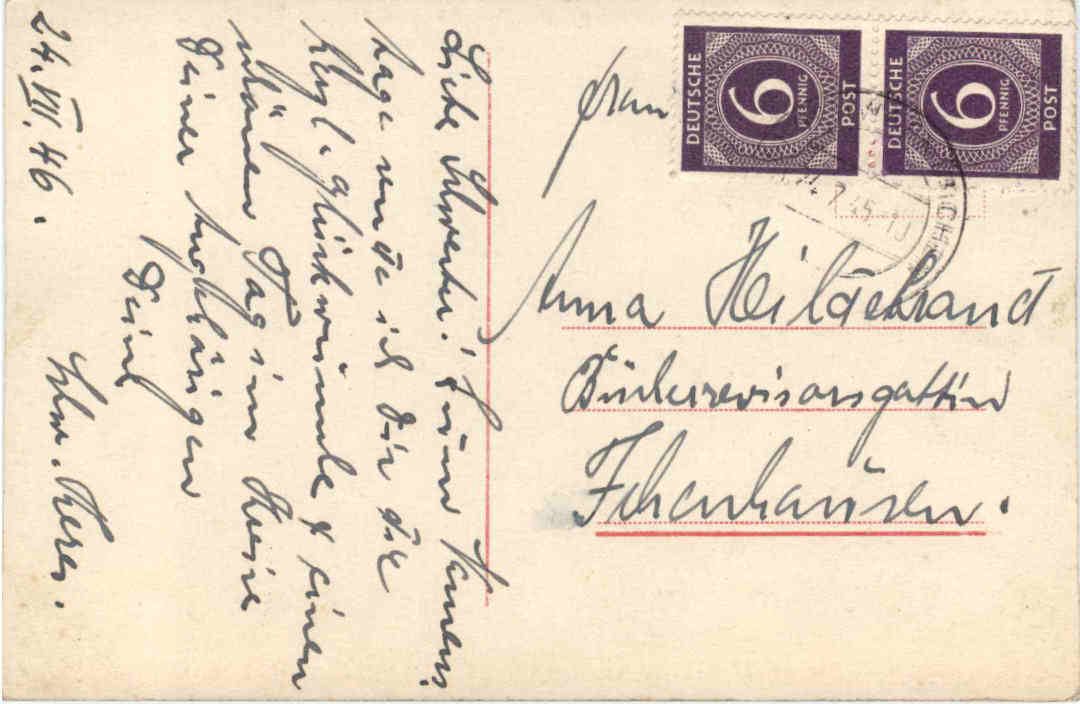 24. VII. 46.
Liebe Schwester! Zum Namens
tage sende ich Dir die
herzl. Glückwünsche & einen
schönen Tag im Kreise
Deiner Angehörigen
Deine
Schw.
Frau
Anna Hildebrand
Ichenhausen.
DEUTSCHE
6
PFENNIG
POST
DEUTSCHE
6
PFENNIG
POST